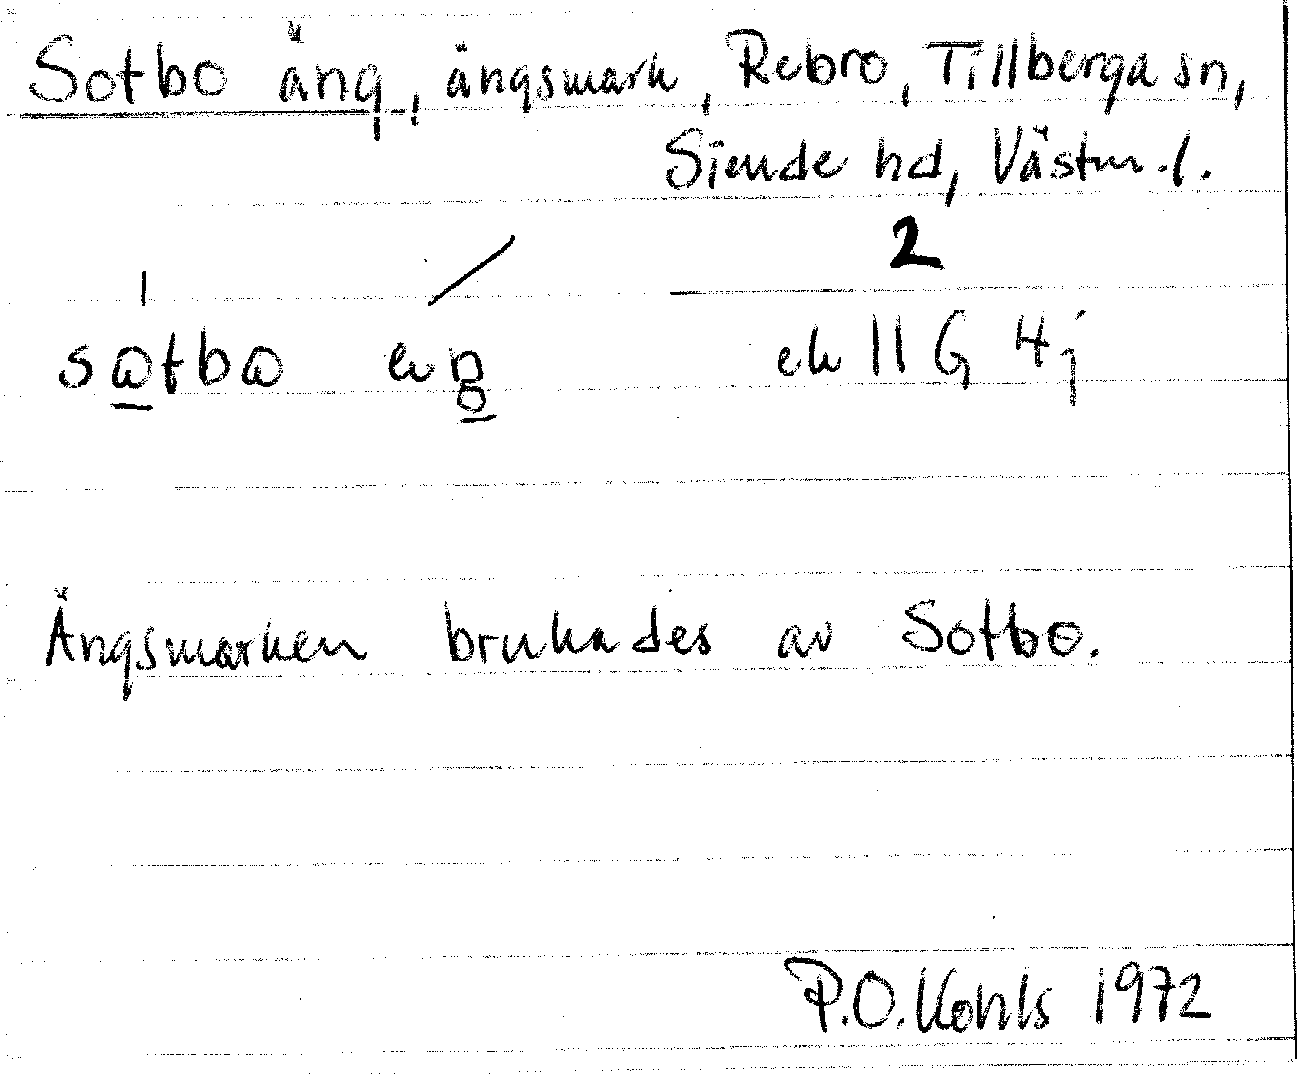 Sotbo äng, ängsmark, Rebro, Tillberga sn,
Siende hd, Västm.l.
2
sotbo eng
ek 11G 4j
Ängsmarken brukades av Sotbo.
P.O. Kohls 1972